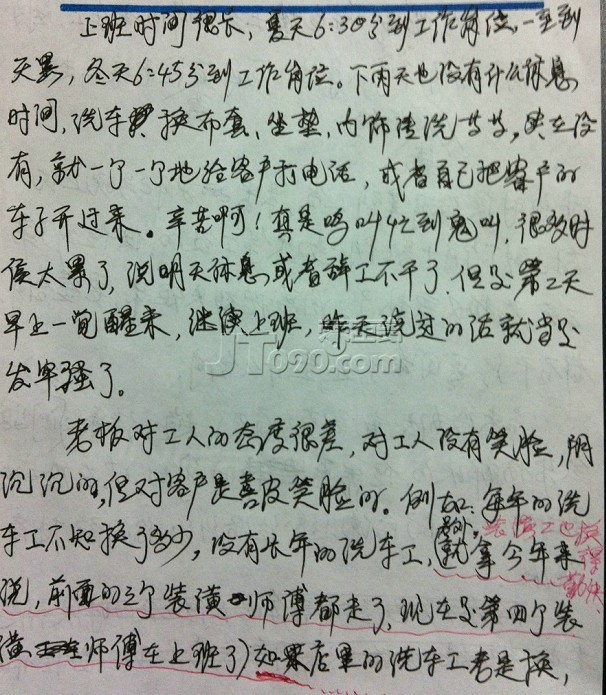 上班时间很长，夏天6:30分到工作岗位，一直到
天黑，冬天6:45分到工作岗位。下雨天也没有什么休息
时间，洗车换布套、坐垫，内饰清洗等等，实在没
有，就一个一个地给客户打电话，或者自己把客户的
车子开过来。辛苦啊！真是鸡叫忙到鬼叫，很多时
候太累了，说明天休息或者辞工不干了，但是第二天
早上一觉醒来，继续上班，昨天说过的话就当是
发牢骚了。
第五街
JT090.com
老板对工人的态度很差，对工人没有笑脸，阴
沉沉的，但对客户是喜皮笑脸的。例如：每年的洗
车工不知换了多少，没有长年的洗车工，就拿今年来
另外，装潢工也换得勤快
说，前面的三个装潢师傅都走了，现在是第四个装
潢师傅在上班了）如果店里的洗车工老是换，